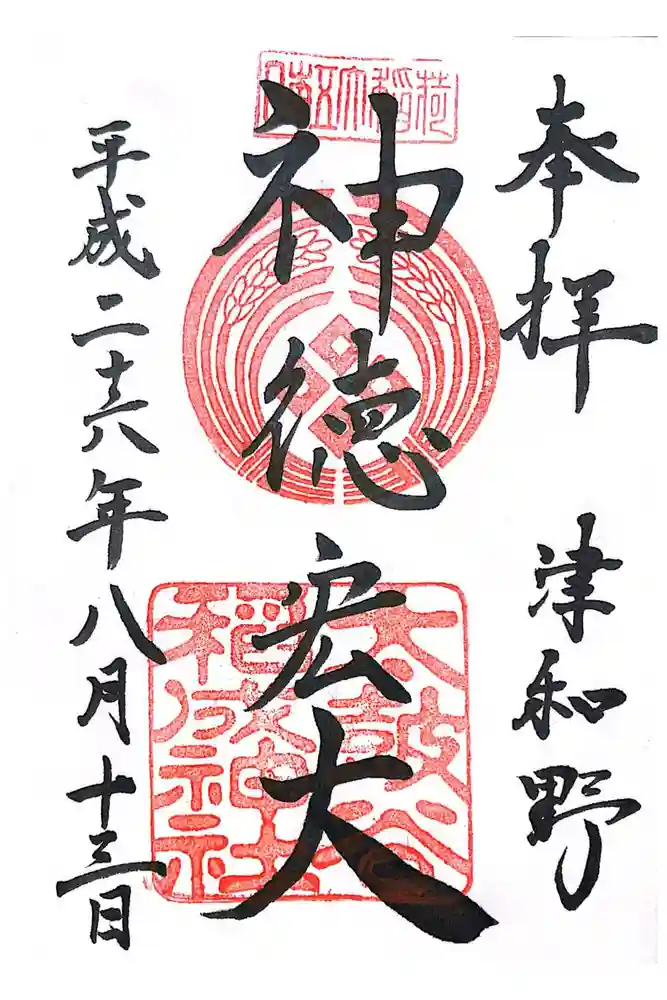 奉拝 津和野
日本五大稲荷
神徳宏大
太皷谷稲成神社
平成二十六年八月十三日